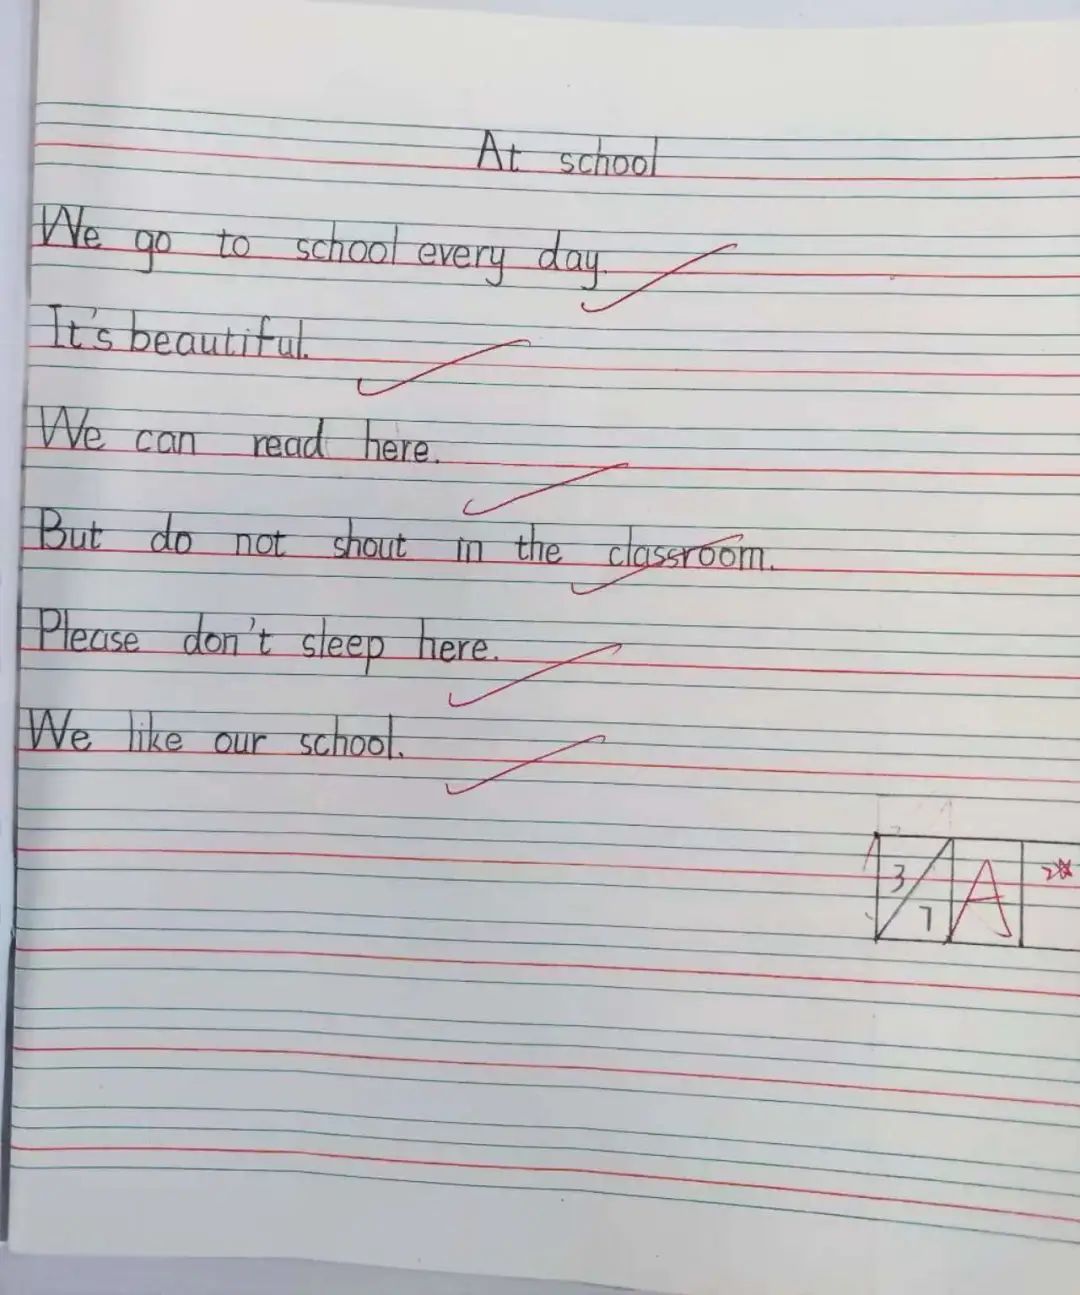 At school
We go to school every day.
It's beautiful.
We can read here.
But do not shout in the classroom.
Please don't sleep here.
We like our school.
3/7 A